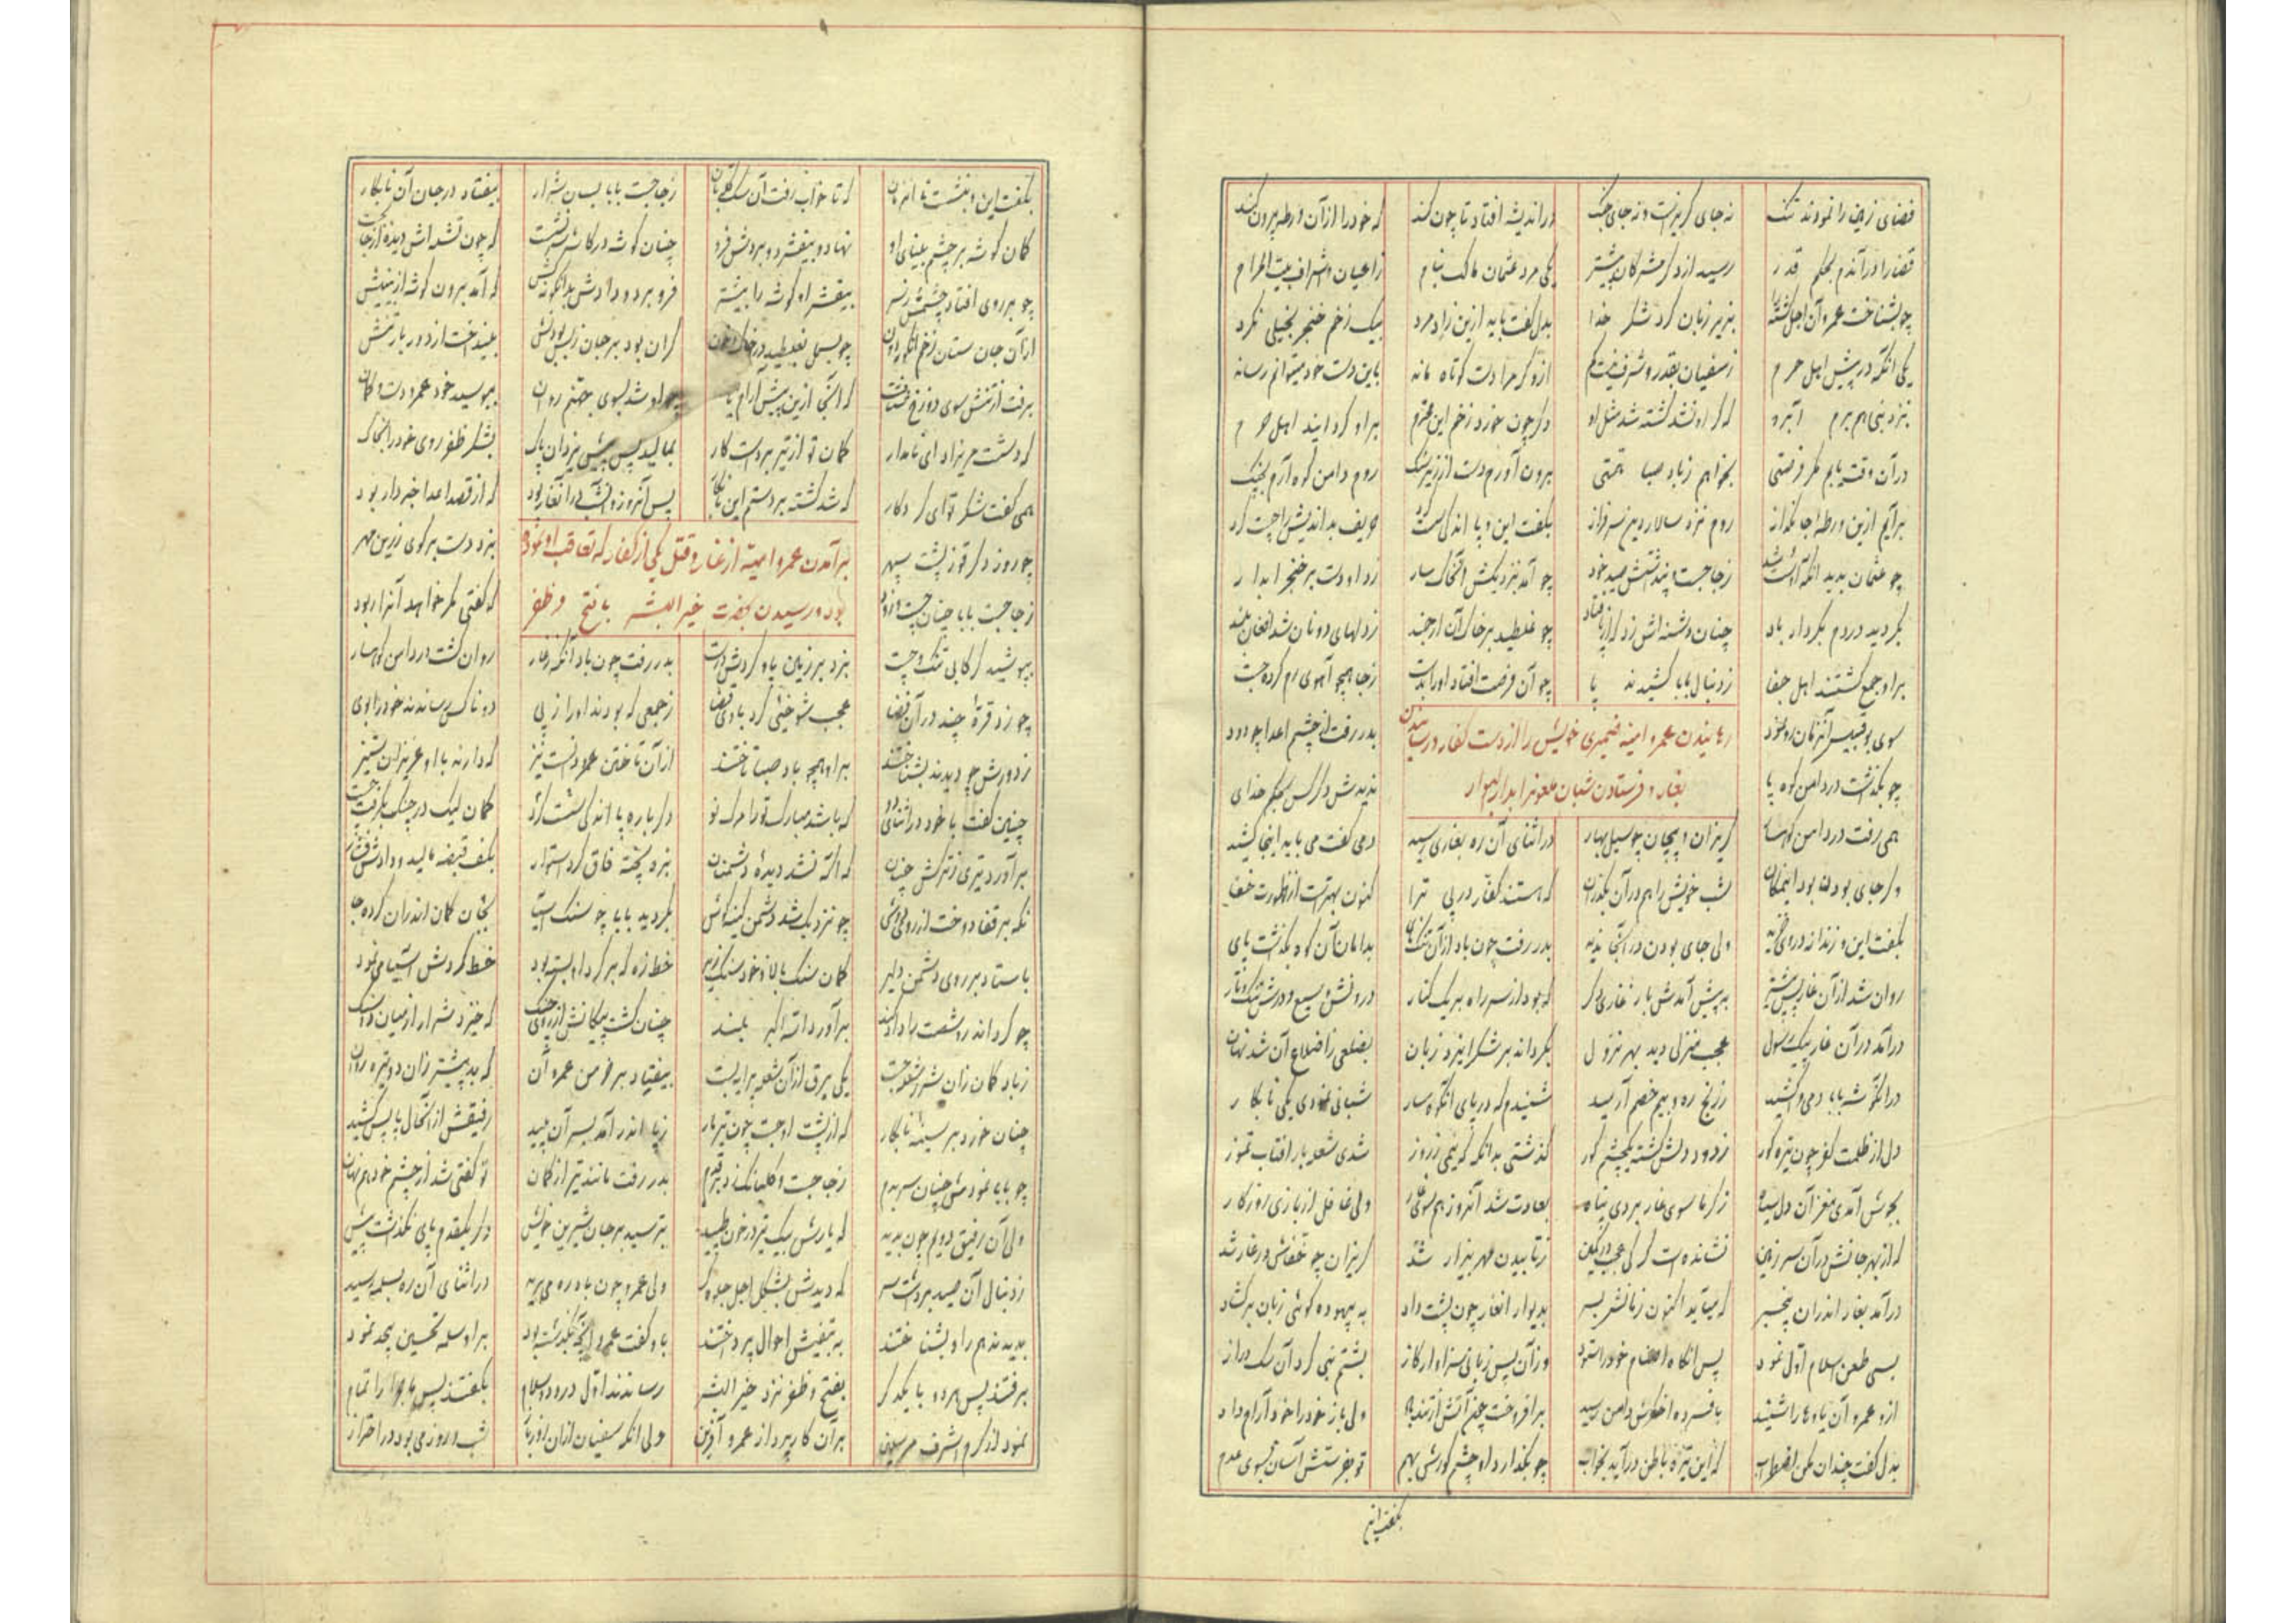 فضای زمین را نمودند تنک نه جای کریز است و نه جای جنک در اندیشه افتاد تا چون کند که خود را از آن ورطه بیرون کند
قضا را در آندم بحکم قدر رسید از دکر مشرکان پیشتر یکی مرد عثمان مالک بنام ز اعیان و اشراف بیت الحرام
چو بشناخت عمرو آن اجل کشته را بزیر زبان کرد شکر خدا بدل کفت باید ازین راد مرد بیک زخم خنجر بخیلی نکرد
یکی آنکه در پیش اهل حرم ز سفیان بقدر و شرف نیست کم ازو کر مرا دست کوتاه ماند باین دست خود میتوانم رساند
نزد بنی هم برم آبرو که کر او نشد کشته شد مثل او دکر چون خورد زخم این محترم براو کرد ایند اهل حرم
در آن وقت یابم مکر فرصتی بخواهم ز باد صبا همتی برون آورم دست از زیر سنک روم دامن کوه آرم بچنک
برآیم ازین ورطه جانکداز روم نزد سالار دین سرفراز بکفت این و پا اندکی سست کرد حریف بداندیش را چست کرد
چو عثمان بدید آنکه او سست شد ز جا جست و پنداشتش صید خود چو آمد بنزدیکش آن خاکسار زد او دست بر خنجر آبدار
بکردید در دم بکردار باد چنان دشنه اش زد که از پا فتاد چو غلطید بر خاک آن ارجمند ز دلهای دونان شد افغان بلند
براو جمع کشتند اهل جفا ز دنبال بابا کشیدند پا چو آن فرصت افتاد او را بدست ز جا همچو آهوی رم کرده جست
سوی بوقبیس آنزمان رو نمود بدر رفت از چشم اعدا چو دود
رهانیدن عمرو امیه ضمیری خویش را از دست کفار و رسیدن
چو بکذشت در دامن کوه پا ندیدش دکر کس بحکم خدای
بغار و فرستادن شبان ملعونرا بدار البوار
همی رفت در دامن کوهسار کریزان و پیچان چو سیل بهار در اثنای آن ره بغاری رسید دمی کفت می باید اینجا کشید
شب خویش را هم در آن بکذران که هستند کفار در پی ترا کنون بهتر است از ظهورت خفا
ولی جای بودن در آنجا ندید بدر رفت چون باد از آن تنکنای بدامان آن کوه بکذشت پای
روان شد از آن غار پیشتر به پیش آمدش باز غاری دکر که بود از سر راه بر یک کنار
درآمد در آن غار پیک رسول عجب منزلی دید بهر نزول بکرداند بر شکر ایزد زبان بضلعی ز اضلاع آن شد نهان
در آن کوشه بابا دمی وا کشید ز رنج ره و بیم خصم آرمید شنیدم که در پای آن کوهسار شبانی نمودی یکی نابکار
دل از ظلمت کفر چون تیره کور ز دود دلش کشته یکچشم کور کذشتی بدانکه که نیمی ز روز شدی شعله بار آفتاب تموز
بجوش آمدی مغز آن دل سیاه ز کرما سوی غار بردی پناه بعادت شد آنروز هم سوی غار ولی غافل از بازی روزکار
که از بهر جانش در آن سر زمین نشانده است کرکی عجب در کمین ز تابیدن مهر بیزار شد کریزان چو خفاش در غار شد
درآمد بغار اندران بیخبر که میآید اکنون زمانش بسر بدیوار آن غار چون پشت داد به بیهوده کوئی زبان برکشاد
بسی طعن اسلام اول نمود پس آنکاه اصنام خود را ستود وزآن پس زبانی سزاوار کاز بشتم نبی کرد آن سک دراز
ازو عمرو آن یاوها را شنید ولی باز خود را خود آرام داد
بدل کفت چندان مکن اضطراب که این تیره باطن درآید بخواب چو بکذارد او چشم کورش بهم تو بفرستش آسان بسوی عدم
بکفت این
بکفت این و بنشست تا آنزمان که تا خواب رفت آن سک قلتبان ز جا جست بابا بسان شرار بیفتاد در جان آن نابکار
کمان کوشه بر چشم بینای او نهاد و بیفشرد و بردش فرو چنان کوشه در کاسه سر نشست که چون تشد اش دیده از جا بجست
چو بر روی افتاد چشمش ز سر بیفشرد او کوشه را بیشتر فرو برد و دادش بدانکونه که آمد برون کوشه از بینیش
از آن جان ستان زخم چو بسمل بغلطید در خاک و خون کران بود بر جان ز بس بودنش بینداخت از دور بار تنش
برفت از تنش سوی دوزخ که آنجا ازین پیش آرام یافت چو او شد بسوی جهنم روان ببوسید خود عمرو دست و کمان
که دستت مریزاد ای نامدار کمان تو از تیر بردست کار بمالید پس پیش یزدان پاک بشکر ظفر روی خود را بخاک
همی کفت شکر تو ای کردکار که شد کشته بر دستم این نابکار پس آنروز و آنشب در آن غار بود که از قصد اعدا خبردار بود
چو روز دکر بزد دست بر کوی زرین مهر
برآمدن عمرو امیه از غار و قتل یکی از کفار که تعاقب او نموده
ز جا جست بابا چنان که کفتی مکر خواهد آنرا ربود
بود و رسیدن بخدمت خیر البشر با فتح و ظفر
بپوشید کرکابی تنک و چست بزد بر زمین پا و کردش درست بدر رفت چون باد روان کشت در دامن کوهسار
چو زد قره چند در آن فضا عجب شوخئی کرد با وی قضا ز جمعی که بودند او را ز پی دو ناکس رساندند خود را بوی
ز دورش چو دیدند بشناختند براو همچو باد صبا تاختند از آن تاختن عمرو دانست نیز که دارند با او عزیزان ستیز
چنین کفت با خود در اثنای دو که باشد مبارک تو را مرک نو دکر باره پا اندکی سست کرد کمان لیک در چنک بکرفت چست
برآورد تیری ز ترکش چنان که آکه نشد دیده دشمنان بزه پخته فاق کرد استوار بکف قبضه مالید و دادش فشار
نکه بر قفا دوخت از رو چو نزدیک شد دشمن کینه کش بکردید بابا چو سنک آسیا
باستاد بر روی دشمن دلیر کمان سنک بالا و خود سنک زیر خط زه که بر کرد او بسته بود خط کردش آسیا می نمود
برآورد الله اکبر بلند چنان کشت پیکانش که خیزد شرار از میان دو سنک
ز باد کمان زان شرر شعله جست یکی برق از آن شعله بر بست بیفتاد بر خرمن عمر آن که بد پیشتر زان دو تیره روان
چنان خورد بر سینه نابکار که از پشت او جست چون تیر مار ز پا اندر آمد بسر آن پلید رفیقش از آنحال پا پس کشید
چو بابا نمود مشئی چنان ز جا جست و کلبانک زد بدر رفت مانند تیر از کمان تو کفتی شد از چشم خود هم نهان
ولی آن رفیق دویم چون بدید که یارش بیک تیر در خون طپید بترسید بر جان شیرین خویش دکر یکقدم پای نکذاشت پیش
ز دنبال آن صید برداشت سر که دیدش بشکل اجل جلوه کر ولی عمرو چون باد ره می برید در اثنای آن ره بسلمه رسید
بدیدند هم را و بشناختند به تفتیش احوال پرداختند باو کفت عمرو آنچه بکذشته بود براو سلمه تحسین بیحد نمود
برفتند پس هردو با یکدکر بفتح و ظفر نزد خیر البشر رساندند اول درود و سلام بکفتند پس ماجرا را تمام
نمود از کرم اشرف مرسلین بر آن کار پرداز عمرو آفرین ولی آنکه سفیان شب و روز می بود در احتراز